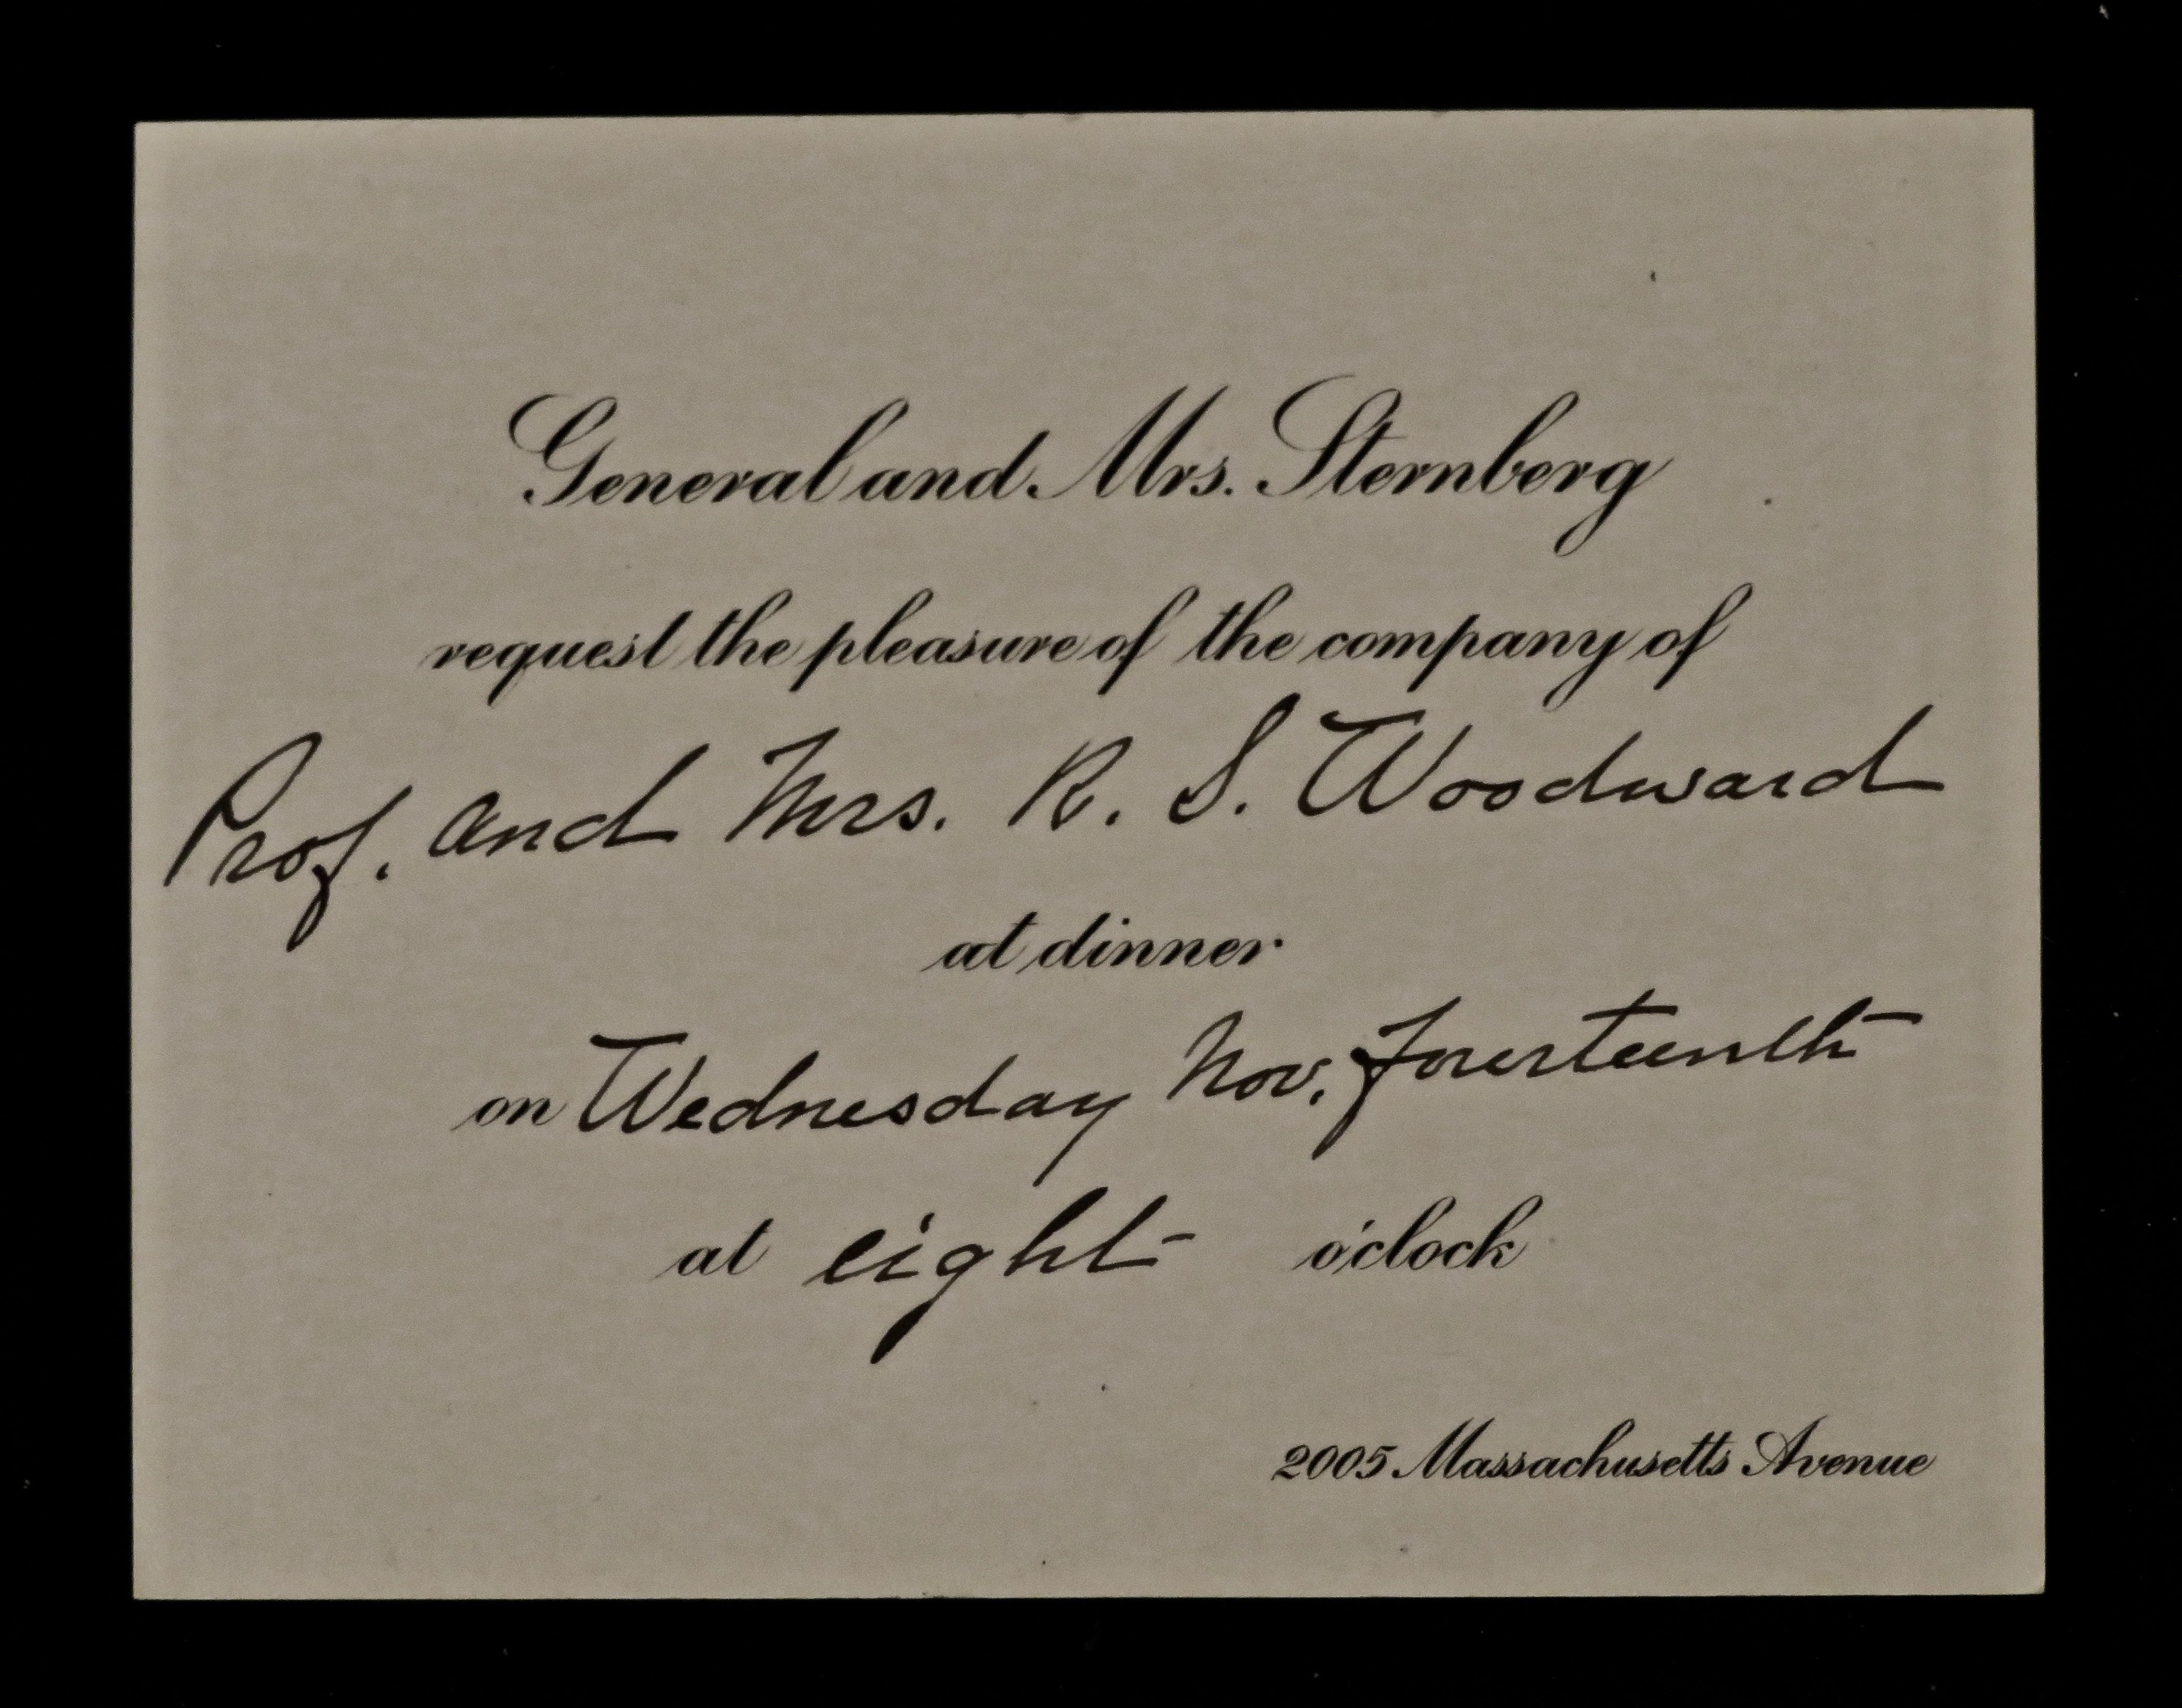 General and Mrs. Sternberg
request the pleasure of the company of
Prof. and Mrs. R. S. Woodward
at dinner
on Wednesday Nov. Fourteenth
at eight o'clock
2005 Massachusetts Avenue